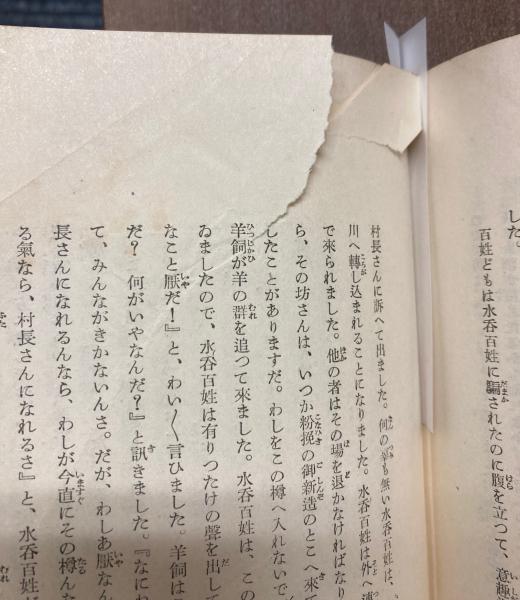 した。
百姓どもは水呑百姓に騙されたのに腹を立つて、意趣
村長さんに訴へて出ました。何の罪も無い水呑百姓は、
川へ轉し込まれることになりました。水呑百姓は外へ連
で來られました。他の者はその場を退かなければなり
ら、その坊さんは、いつか粉挽の御新造のとこへ來て
したことがありますだ。わしをこの樽へ入れないで
羊飼が羊の群を追つて來ました。水呑百姓は、この
ゐましたので、水呑百姓は有りつたけの聲を出して
なこと厭だ！』と、わい〳〵言ひました。羊飼は
だ？　何がいやなんだ？』と訊きました。『なにね
て、みんながきかないんさ。だが、わしあ厭なん
長さんになれるんなら、わしが今直にその樽ん
る氣なら、村長さんになれるさ』と、水呑百姓が